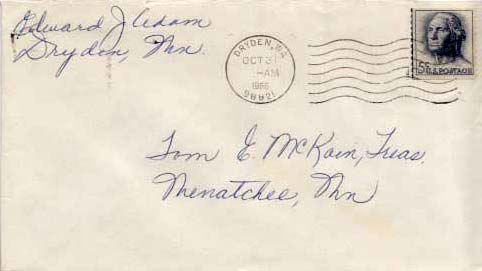 Edward J Adam
Dryden, Wn.
DRYDEN, WA
OCT 31
AM
1966
98821
5¢ U.S. POSTAGE
Tom E. McKoin, Treas.
Wenatchee, Wn